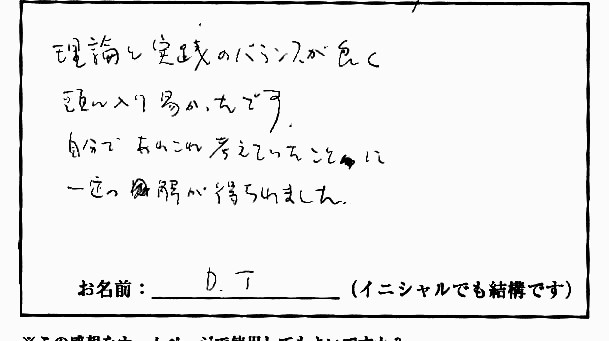 理論と実践のバランスが良く
頭に入り易かったです。
自分であれこれ考えていたことに
一定の解が得られました。
お名前：D. T （イニシャルでも結構です）
※この感想をホームページで使用してもよいですか？